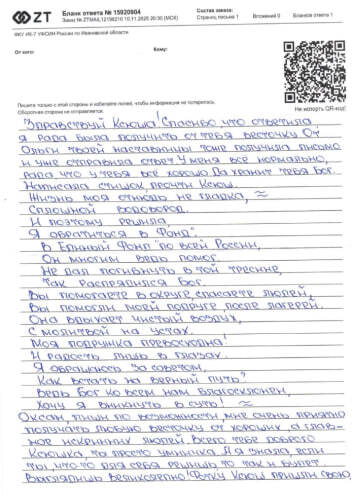 ZT
Бланк ответа № 15920604
Состав заказа:
Страниц письма 1
Вложений 0
Бланков ответа 1
ФКУ ИК-7 УФСИН России по Ивановской области
От кого:
Кому:
Пишите только с этой стороны и избегайте полей, чтобы информация не потерялась.
Оборотная сторона не отправляется.
Не испорть QR-код!
Здравствуй Ксюша! Спасибо, что ответила,
я рада была получить от тебя весточку От
Ольги твоей наставницы тоже получила письмо
и уже отправила ответ У меня всё нормально,
рада что у тебя всё хорошо Да хранит тебя Бог.
Написала стишок, прочти Ксюш.
Жизнь моя отнюдь не гладка, ≈
Сплошной водоворот.
И поэтому решила,
Я обратиться в Фонд".
В Единый Фонд "по всей России,
Он многим ведь помог.
Не дал погибнуть в той трясине,
Так распрялился Бог.
Вы помогаете в округе, спасаете людей,
Вы помогли моей подруге после лагерей.
Она вдыхает чистый воздух,
С молитвой на устах.
Моя подружка превосходна!
И радость лишь в глазах.
Я обращаюсь за советом,
Как встать на верный путь?
Ведь Бог ко всем нам благосклонен,
Хочу я вникнуть в суть! ≈
Оксан, пиши по возможности, мне очень приятно
получать любую весточку от хороших, а глав-
ное искренних людей. Всего тебе доброго
Ксюшка, ты просто умничка. Я знала, если
ты, что-то для себя решишь то так и будет.
Выглядишь великолепно! Фотку Ксюш пришли свою